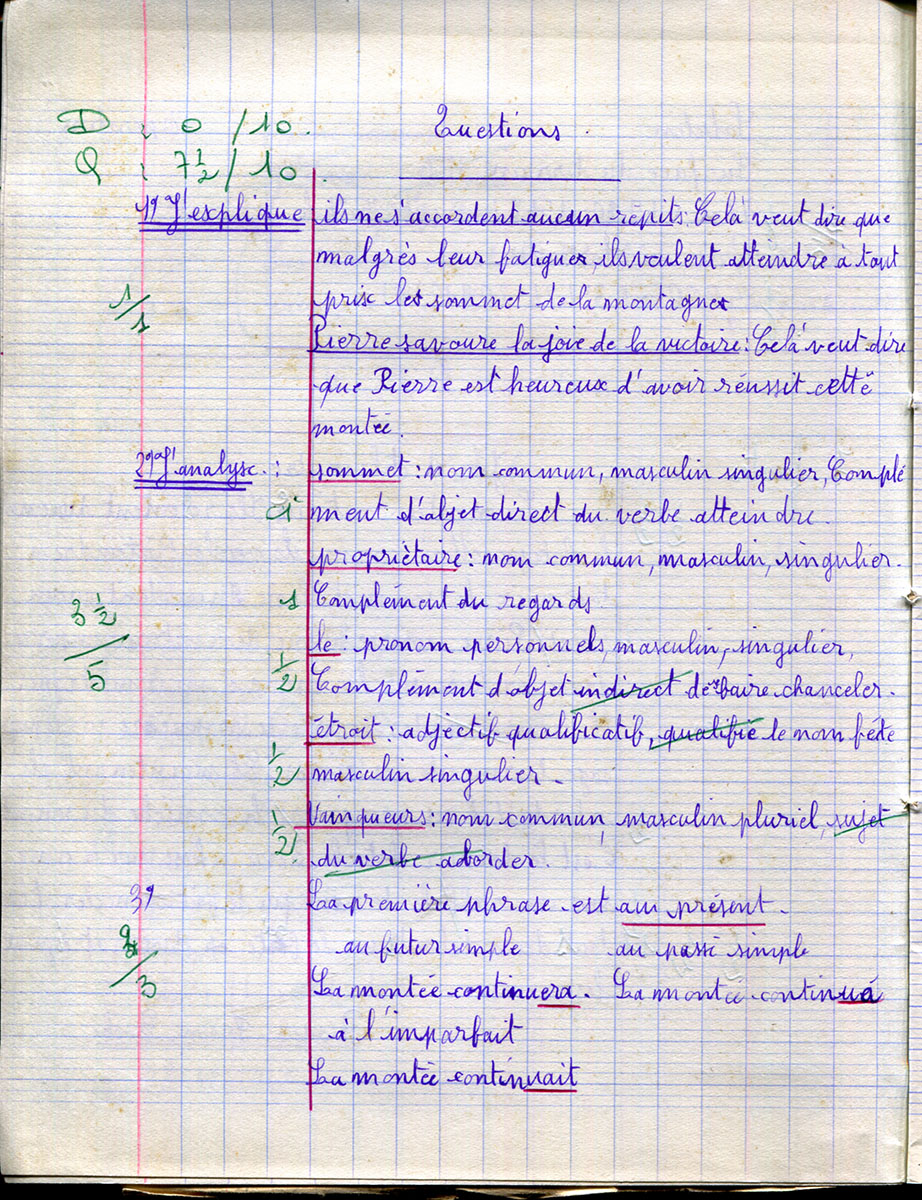 D : 0 / 10.
Questions.
Q : 7 1/2 / 10.
1º J'explique ils ne s'accordent aucun répits. Celà veut dire que
malgrès leur fatigues, ils veulent atteindre à tout
1/1
prix les sommet de la montagnes
Pierre savoure la joie de la victoire : Celà veut dire
que Pierre est heureux d'avoir réussit cette
montée.
2º J'analyse. : sommet : nom commun, masculin singulier, Complé
ment d'objet direct du verbe atteindre.
propriètaire : nom commun, masculin, singulier.
1 Complément du regards.
3 1/2 / 5
le : pronom personnels, masculin, singulier,
1/2 Complément d'objet indirect de faire chanceler.
étroit : adjectif qualificatif, qualifie le nom
1/2 masculin singulier.
Vainqueurs : nom commun, masculin pluriel, sujet
1/2 du verbe aborder.
3º La première phrase est au présent.
au futur simple au passé simple
/3
La montée continuera. La montée continuá
à l'imparfait
La montée continuait